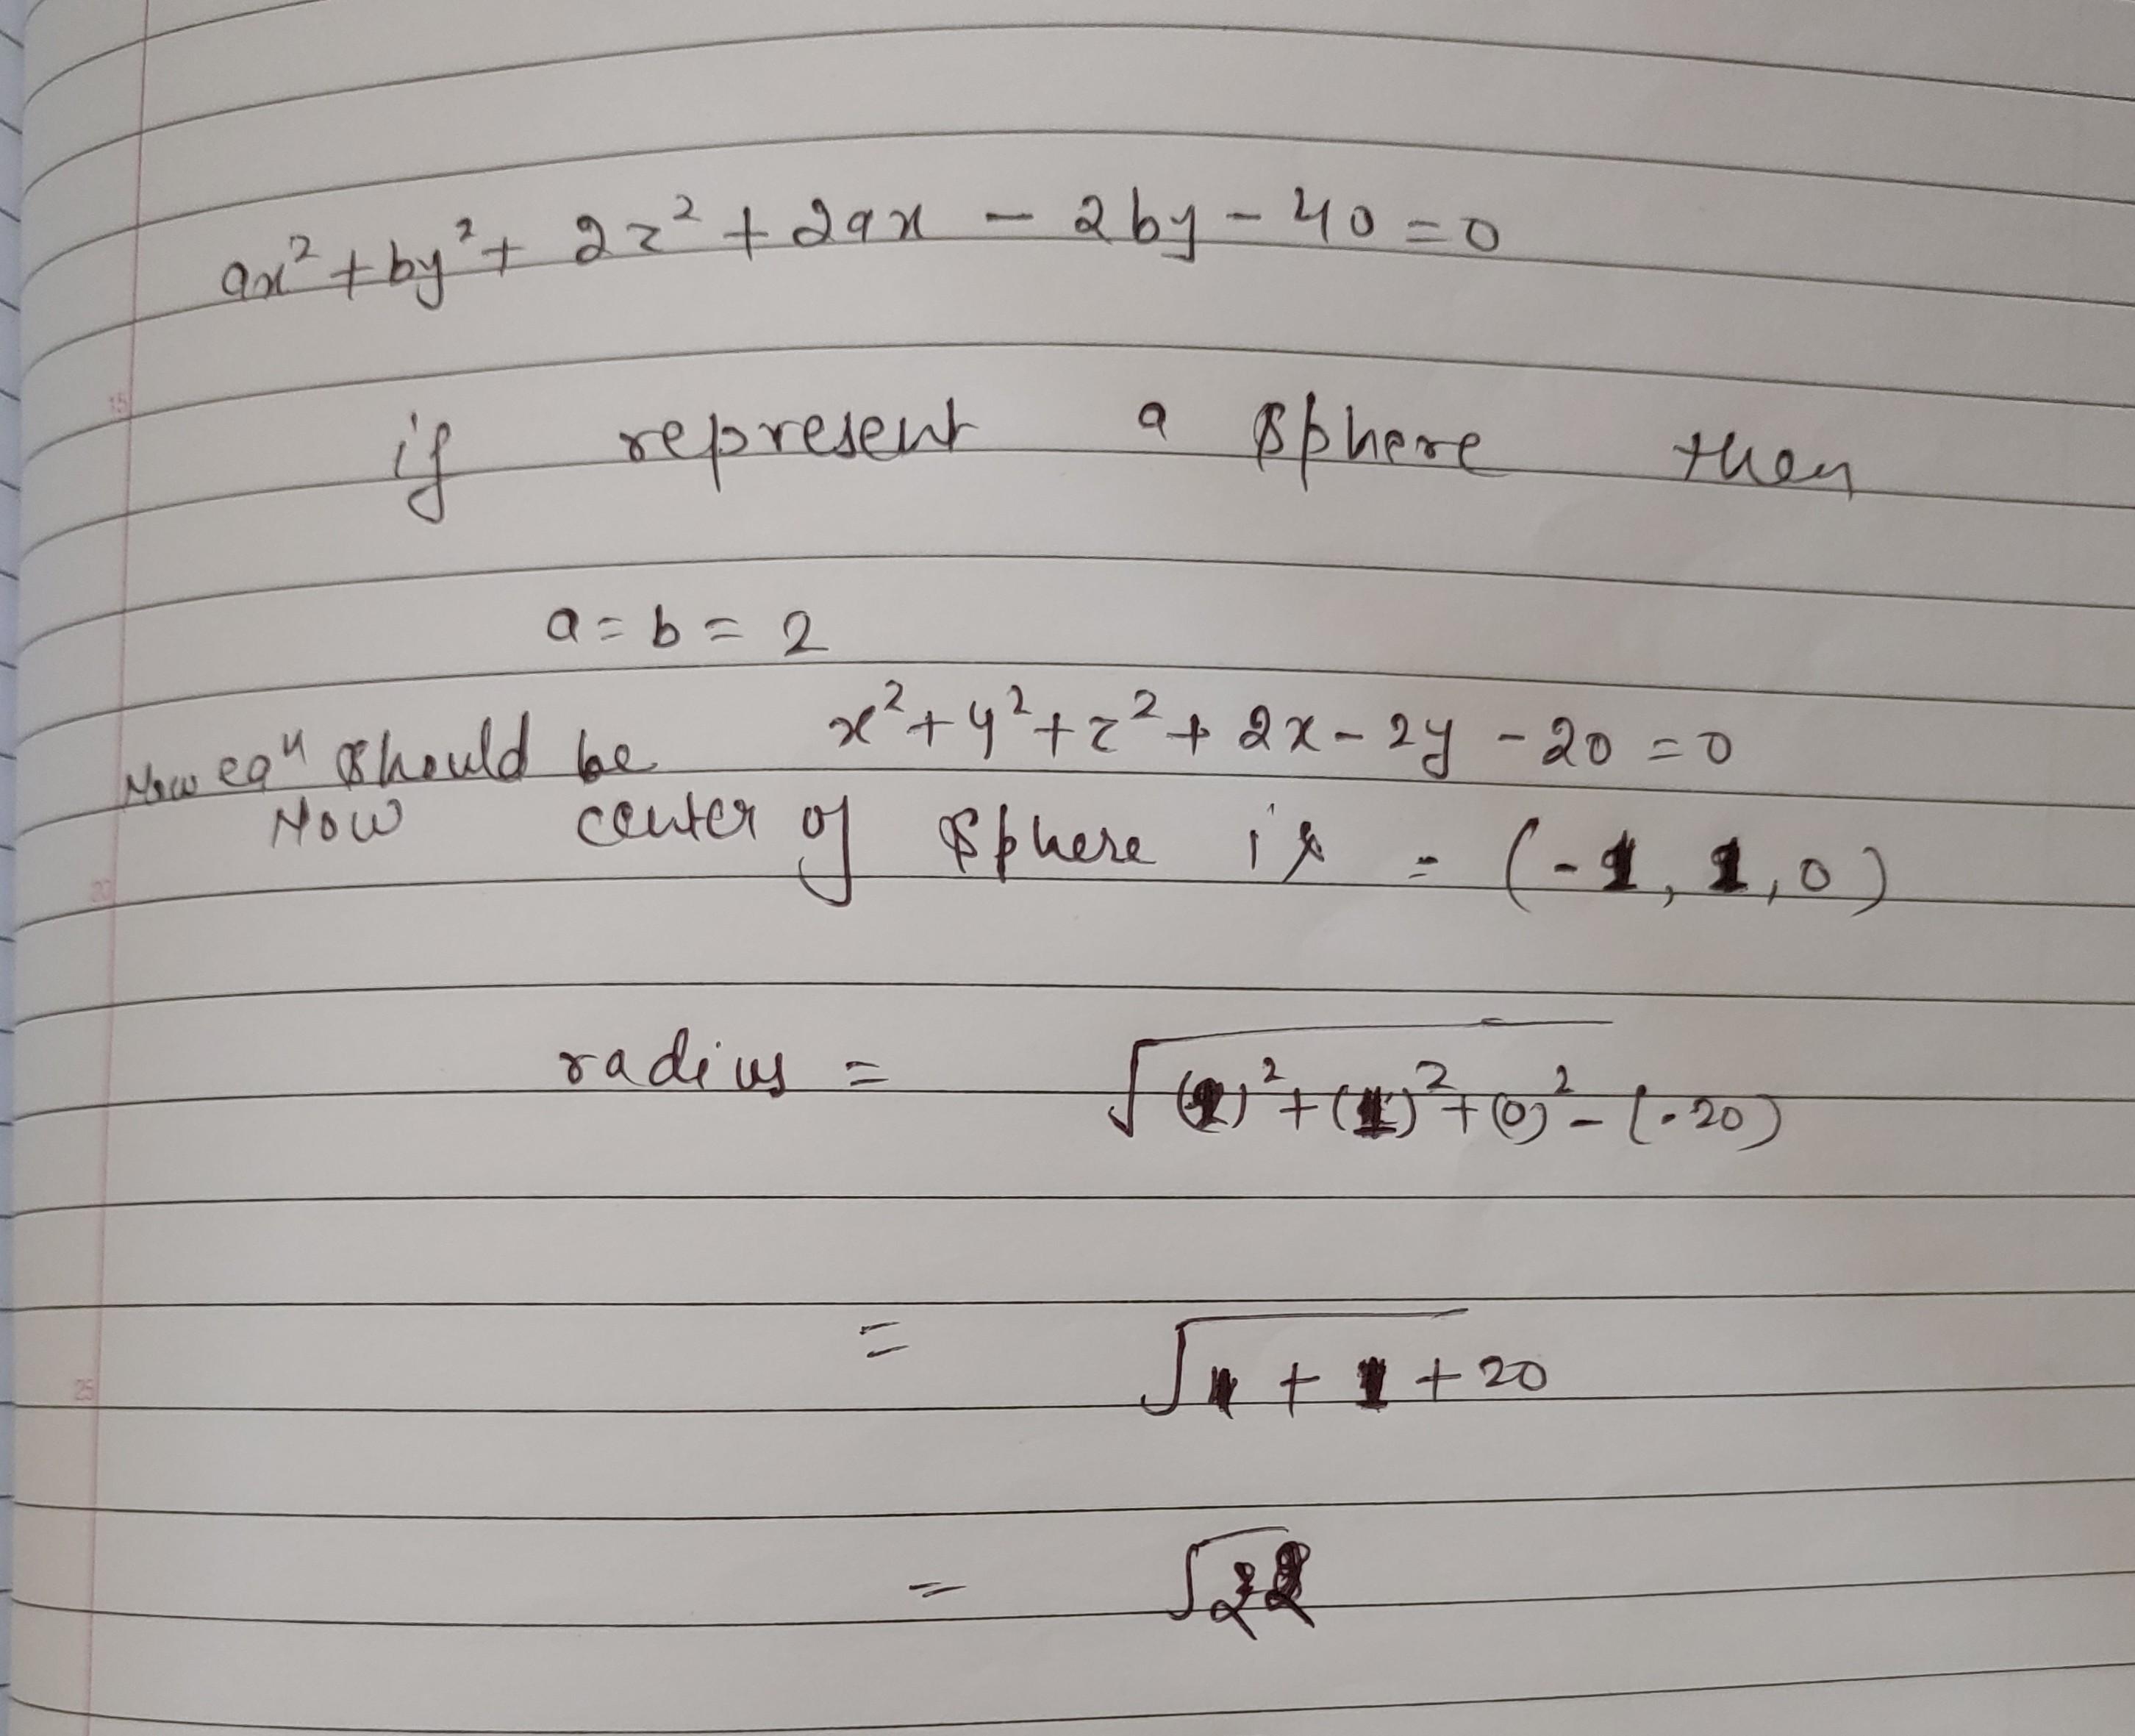 ax² + by² + 2z² + 2ax - 2by - 40 = 0
if represent a sphere then
a = b = 2
Now eqⁿ should be x² + y² + z² + 2x - 2y - 20 = 0
Now center of sphere is = (-1, 1, 0)
radius = √(1)² + (1)² + (0)² - (-20)
= √1 + 1 + 20
= √22
15
20
25